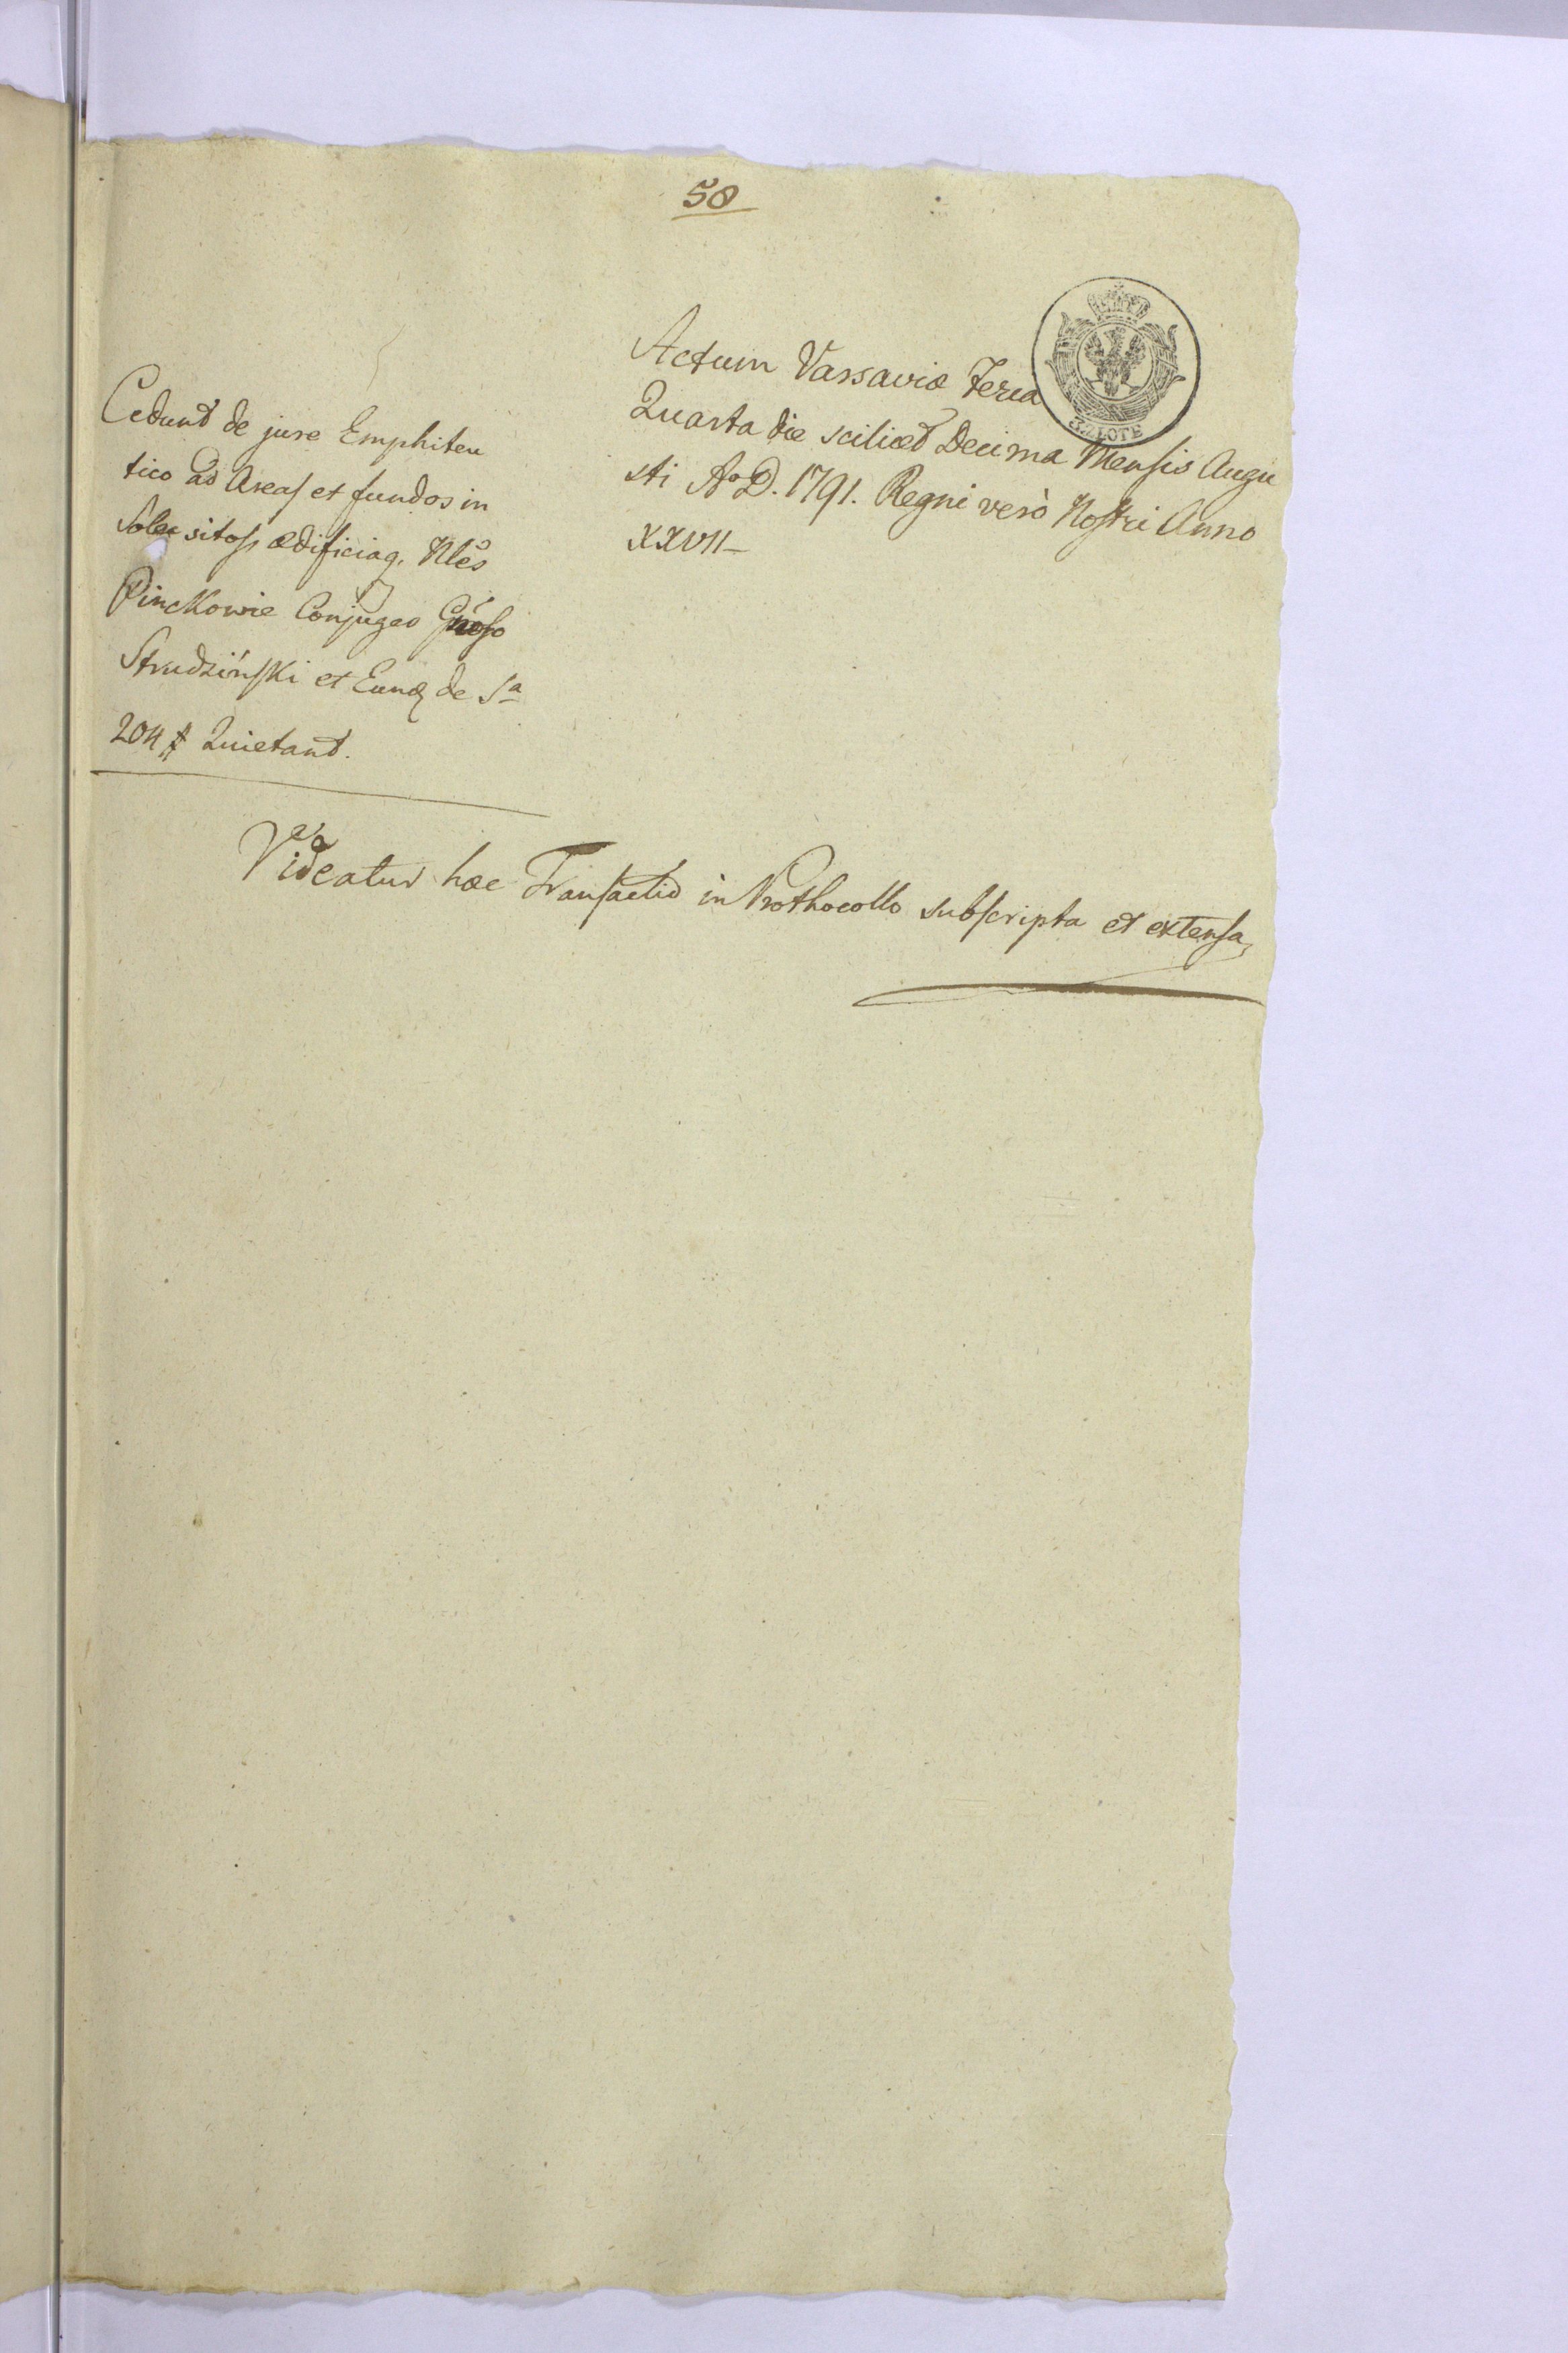 58
Actum Varsaviæ Feria
Quarta die scilicet Decima Mensis Augu
sti Aº D. 1791. Regni verò Nostri Anno
XXVII
3. ZŁOTE
Cedunt de jure Emphiteu
tico ad Areas et fundos in
Solec sitos, ædificiaq. Nles
Pinckowie Conjuges Gnoso
Strudziński et Eundͤ de Sª
204 # Quietant.
Videatur hæc Transactio in Prothocollo subscripta et extensa